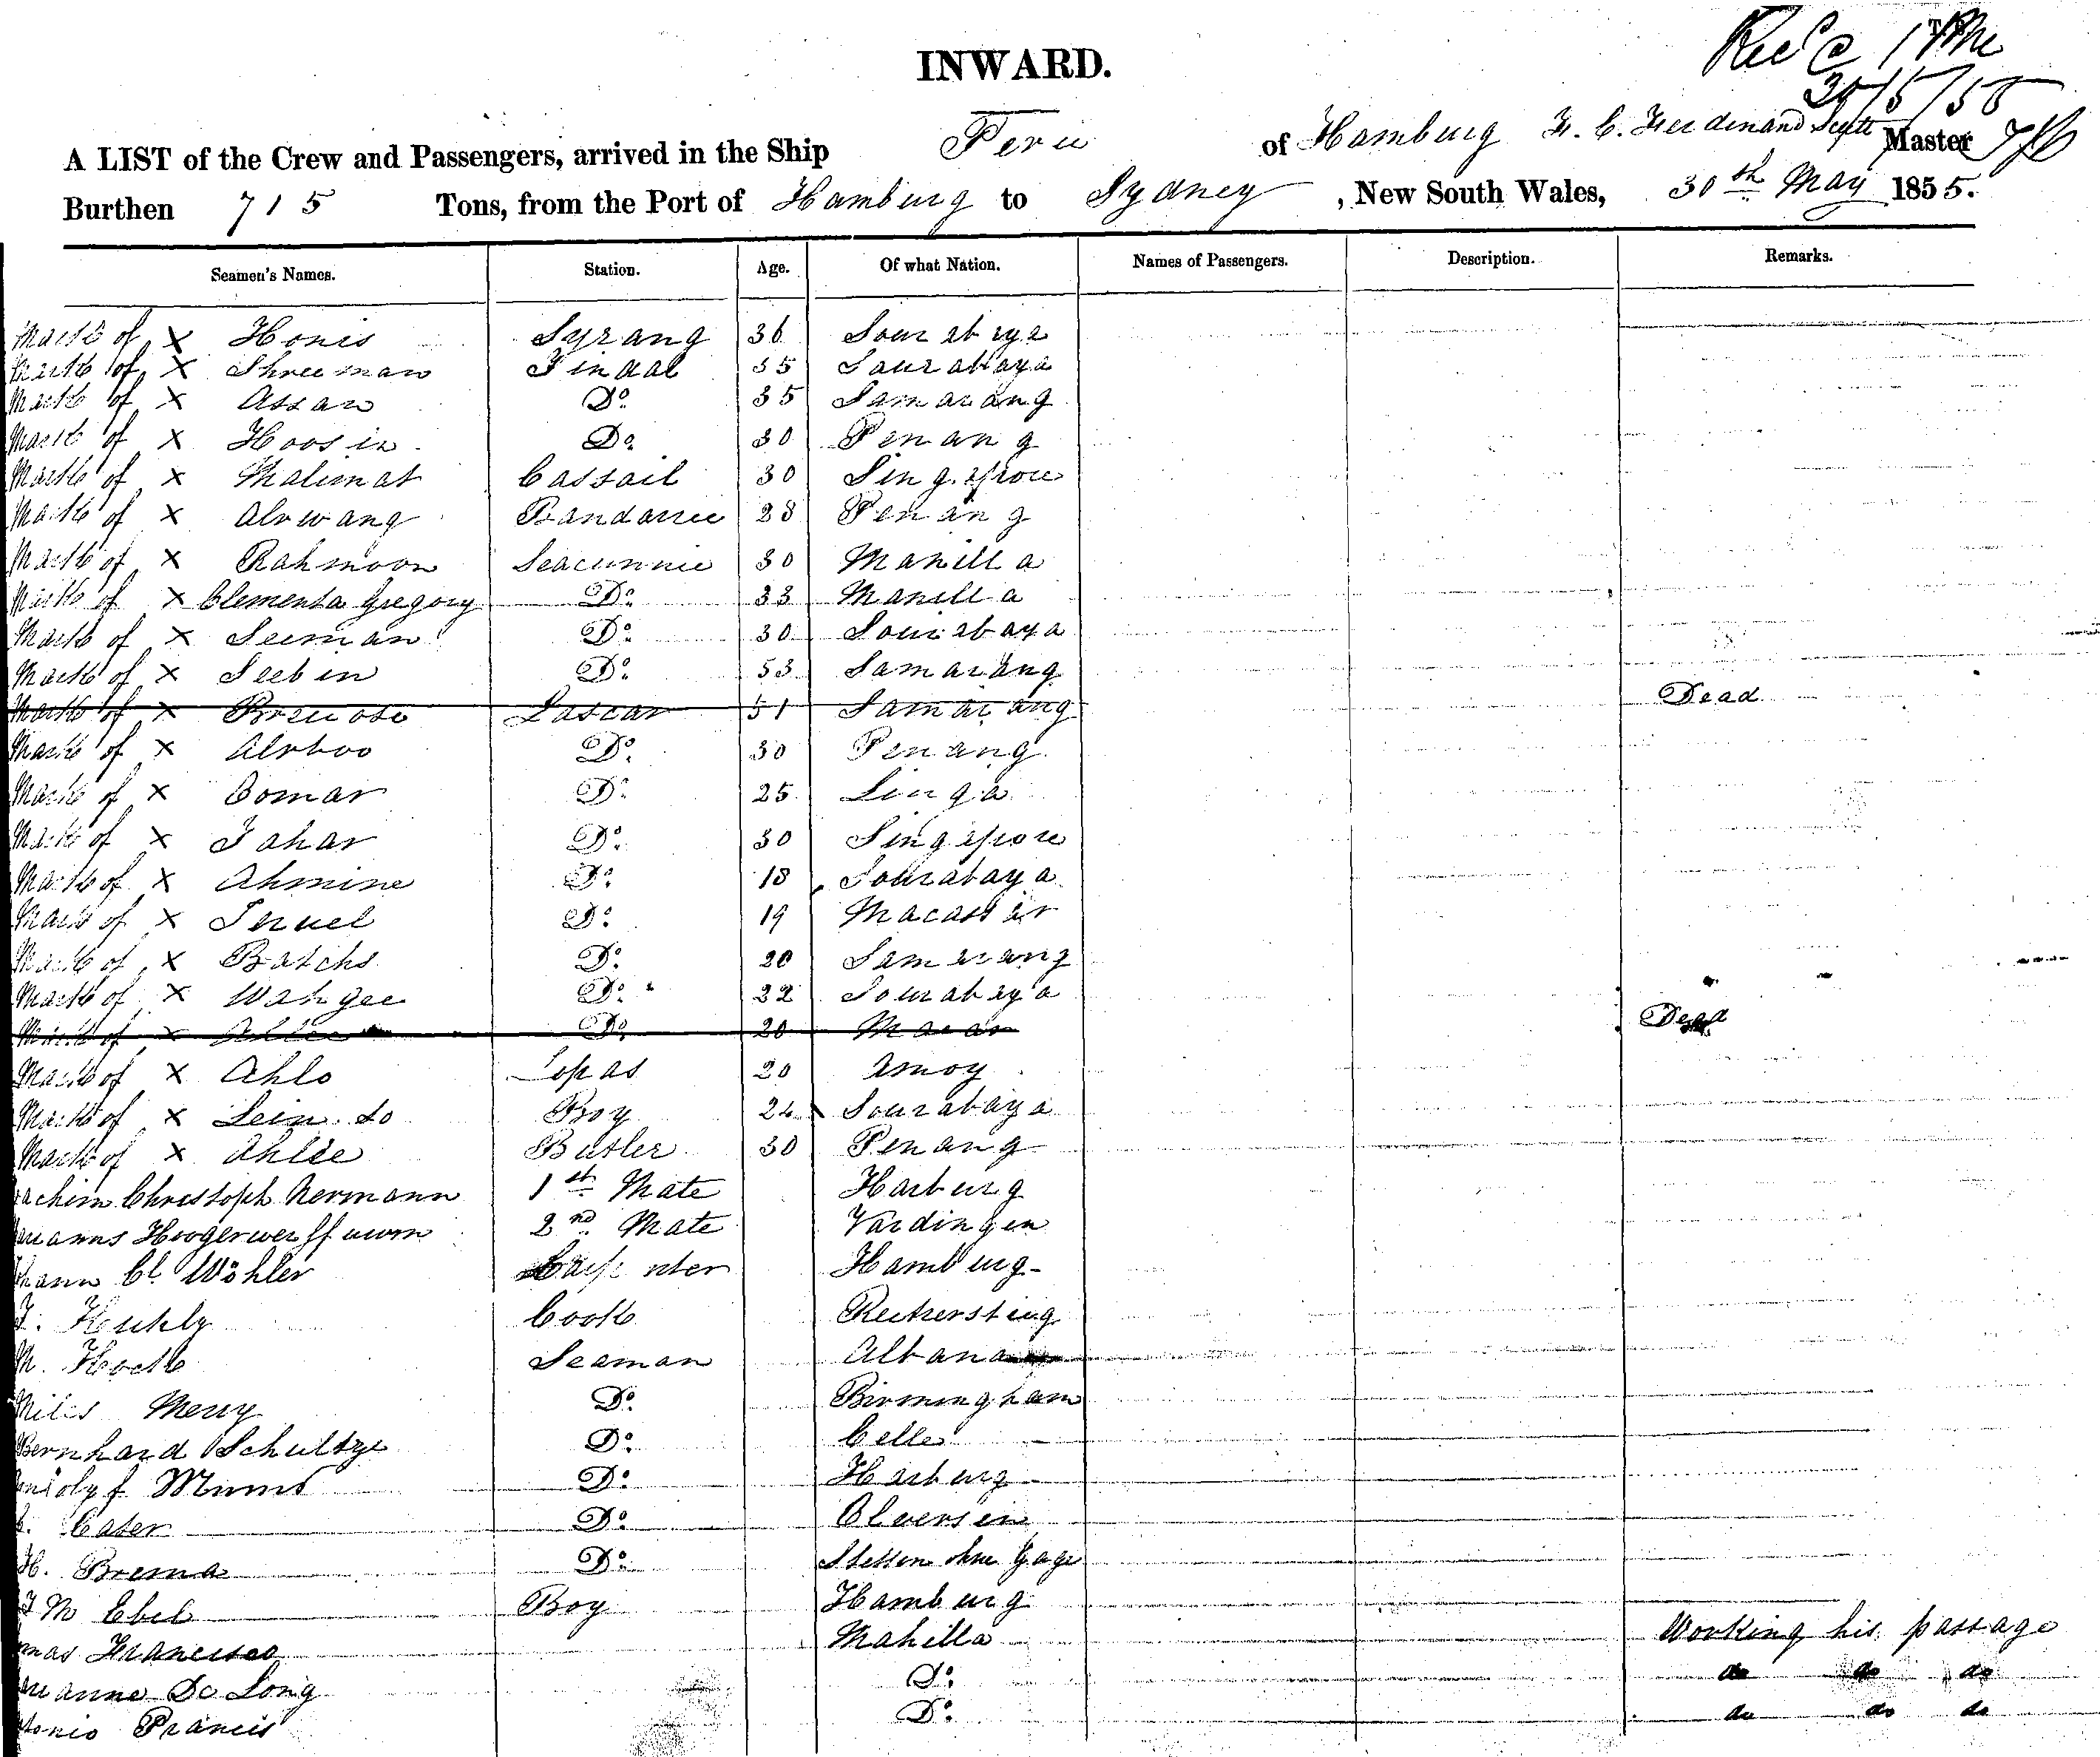 INWARD.
A LIST of the Crew and Passengers, arrived in the Ship Peru of Hamburg F. C. Ferdinand Master
Burthen 715 Tons, from the Port of Hamburg to Sydney, New South Wales, 30th May 1855.
Seamen's Names. Station. Age. Of what Nation. Names of Passengers. Description. Remarks.
Mark of X Honis Syrang 36 Sourabaya
Mark of X Shreeman Tindal 35 Sourabaya
Mark of X Assan Do 35 Samarang
Mark of X Hoosin Do 30 Penang
Mark of X Thalimat Cassail 30 Singapore
Mark of X Alowang Bandaree 28 Penang
Mark of X Rahmoon Seacunnie 30 Manilla
Mark of X Clementa Gregory Do 33 Manilla
Mark of X Seeman Do 30 Sourabaya
Mark of X Seeben Do 53 Samarang
Mark of X Lascar 51 Samarang Dead
Mark of X Aloboo Do 30 Penang
Mark of X Oomar Do 25 Linga
Mark of X Jahar Do 30 Singapore
Mark of X Ahmine Do 18 Sourabaya
Mark of X Do 19 Macassar
Mark of X Batchs Do 20 Samarang
Mark of X Wahgee Do 22 Sourabaya
Mark of X Do 20 Dead
Mark of X Ahlo Topas 20 Amoy
Mark of X Boy 24 Sourabaya
Mark of X Ahlee Butler 30 Penang
Christoph Nermann 1st Mate Harburg
Hoogerwerff 2nd Mate Vardingen
Cl. Wöhler Carpenter Hamburg
Cook
Seaman Altana
Miles Merry Do Birmingham
Bernhard Schultze Do Celle
Do Harburg
Cater Do Olversen
H. Brema Do Stettin ohne Gage
J M Ebel Boy Hamburg
Francisco Manilla Working his passage
De Long Do do do do
Francis Do do do do